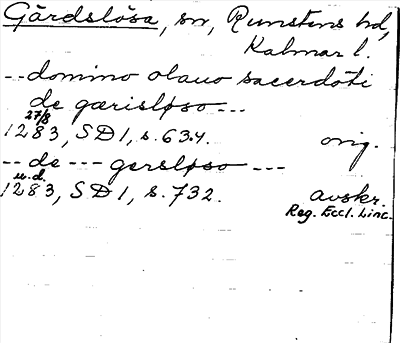 Gärdslösa, sn, Runstens hd,
Kalmar l.
-- domino olauo sacerdoti
de gærisløso ---
27/8
1283, SD 1, s. 634. orig.
-- de --- gersløso ---
u.d.
1283, SD 1, s. 732. avskr.
Reg. Eccl. Linc.